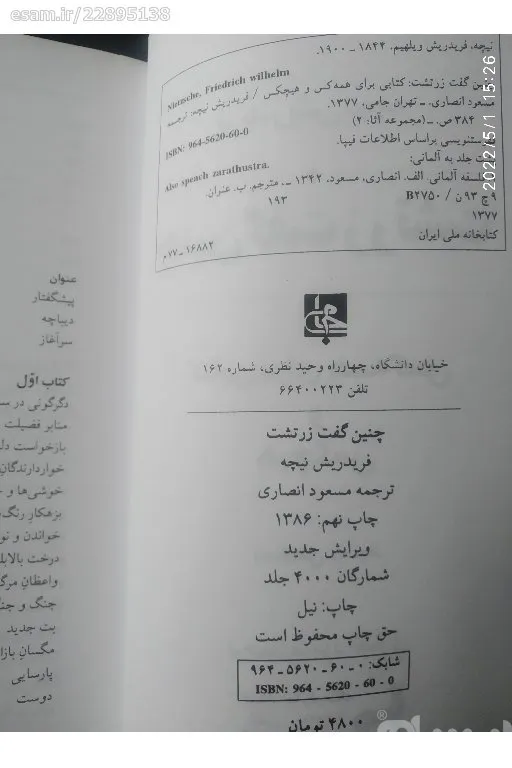 esam.ir/22895138
نیچه، فریدریش ویلهیم، ۱۸۴۴ ـ ۱۹۰۰.
Nietzsche, Friedrich wilhelm
چنین گفت زرتشت: کتابی برای همه‌کس و هیچکس / فریدریش نیچه: ترجمه
مسعود انصاری. ـ تهران جامی، ۱۳۷۷.
۳۸۴ ص. ـ (مجموعه آثار: ۲)
ISBN: 964-5620-60-0
فهرستنویسی براساس اطلاعات فیپا.
پشت جلد به آلمانی:
Also speach zarathustra.
فلسفه آلمانی. الف. انصاری، مسعود، ۱۳۴۲ ـ ، مترجم. ب. عنوان.
۹ چ ۹۳ ن / B۲۷۵۰
۱۹۳
۱۳۷۷
کتابخانه ملی ایران
۱۶۸۸۲ ـ ۷۷م
2022/5/1 15:26
خیابان دانشگاه، چهارراه وحید نظری، شماره ۱۶۲
تلفن ۶۶۴۰۰۲۲۳
چنین گفت زرتشت
فریدریش نیچه
ترجمه مسعود انصاری
چاپ نهم: ۱۳۸۶
ویرایش جدید
شمارگان ۴۰۰۰ جلد
چاپ: نیل
حق چاپ محفوظ است
شابک: ۰ ـ ۶۰ ـ ۵۶۲۰ ـ ۹۶۴
ISBN: 964 - 5620 - 60 - 0
۴۸۰۰ تومان
عنوان
پیشگفتار
دیباچه
سرآغاز
کتاب اوّل
دگرگونی در
منابر فضیلت
بازخواست
خواردارندگان
خوشی‌ها و
بزهکار
خواندن و
درخت
واعظان مرگ
جنگ و
بت جدید
مگسان بازار
پارسایی
دوست